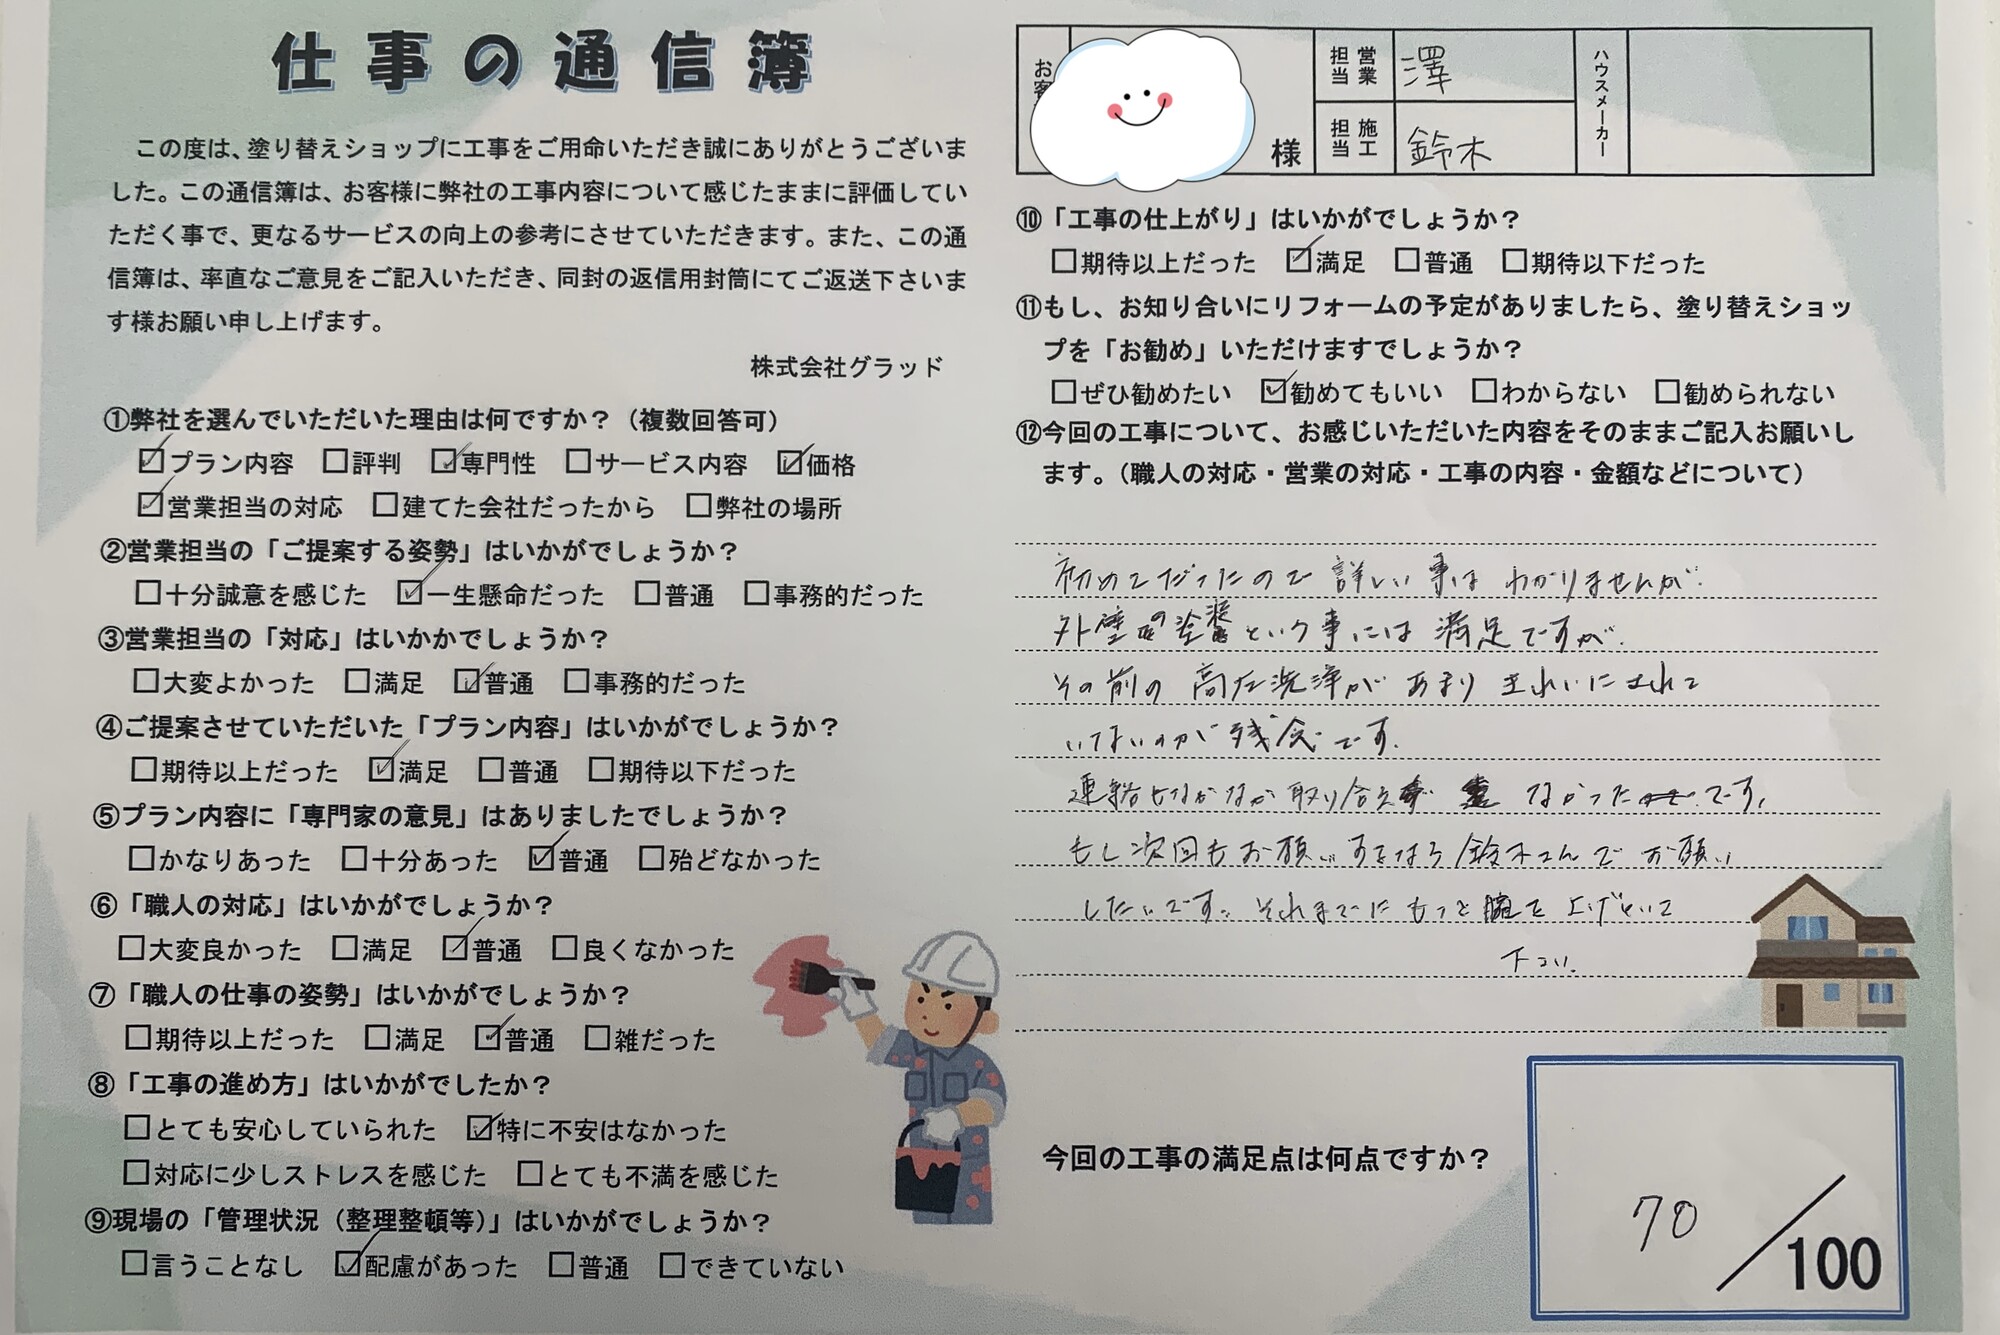 仕事の通信簿
この度は、塗り替えショップに工事をご用命いただき誠にありがとうございま
した。この通信簿は、お客様に弊社の工事内容について感じたままに評価してい
ただく事で、更なるサービスの向上の参考にさせていただきます。また、この通
信簿は、率直なご意見をご記入いただき、同封の返信用封筒にてご返送下さいま
す様お願い申し上げます。
株式会社グラッド
①弊社を選んでいただいた理由は何ですか？（複数回答可）
☑プラン内容 □評判 ☑専門性 □サービス内容 ☑価格
☑営業担当の対応 □建てた会社だったから □弊社の場所
②営業担当の「ご提案する姿勢」はいかがでしょうか？
□十分誠意を感じた ☑一生懸命だった □普通 □事務的だった
③営業担当の「対応」はいかかでしょうか？
□大変よかった □満足 ☑普通 □事務的だった
④ご提案させていただいた「プラン内容」はいかがでしょうか？
□期待以上だった ☑満足 □普通 □期待以下だった
⑤プラン内容に「専門家の意見」はありましたでしょうか？
□かなりあった □十分あった ☑普通 □殆どなかった
⑥「職人の対応」はいかがでしょうか？
□大変良かった □満足 ☑普通 □良くなかった
⑦「職人の仕事の姿勢」はいかがでしょうか？
□期待以上だった □満足 ☑普通 □雑だった
⑧「工事の進め方」はいかがでしたか？
□とても安心していられた ☑特に不安はなかった
□対応に少しストレスを感じた □とても不満を感じた
⑨現場の「管理状況（整理整頓等）」はいかがでしょうか？
□言うことなし ☑配慮があった □普通 □できていない
お客 様 営業担当 澤 ハウスメーカー
施工担当 鈴木
⑩「工事の仕上がり」はいかがでしょうか？
□期待以上だった ☑満足 □普通 □期待以下だった
⑪もし、お知り合いにリフォームの予定がありましたら、塗り替えショッ
プを「お勧め」いただけますでしょうか？
□ぜひ勧めたい ☑勧めてもいい □わからない □勧められない
⑫今回の工事について、お感じいただいた内容をそのままご記入お願いし
ます。（職人の対応・営業の対応・工事の内容・金額などについて）
初めてだったので 詳しい事は わかりませんが.
外壁の塗装という事には 満足ですが.
その前の 高圧洗浄が あまり きれいにされて
いないのが 残念です.
連絡もなかなか 取り合え なかったです.
もし次回もお願いするなら 鈴木さんで お願い
したいです。それまでに もっと 腕を 上げといて
下さい.
今回の工事の満足点は何点ですか？
70/100